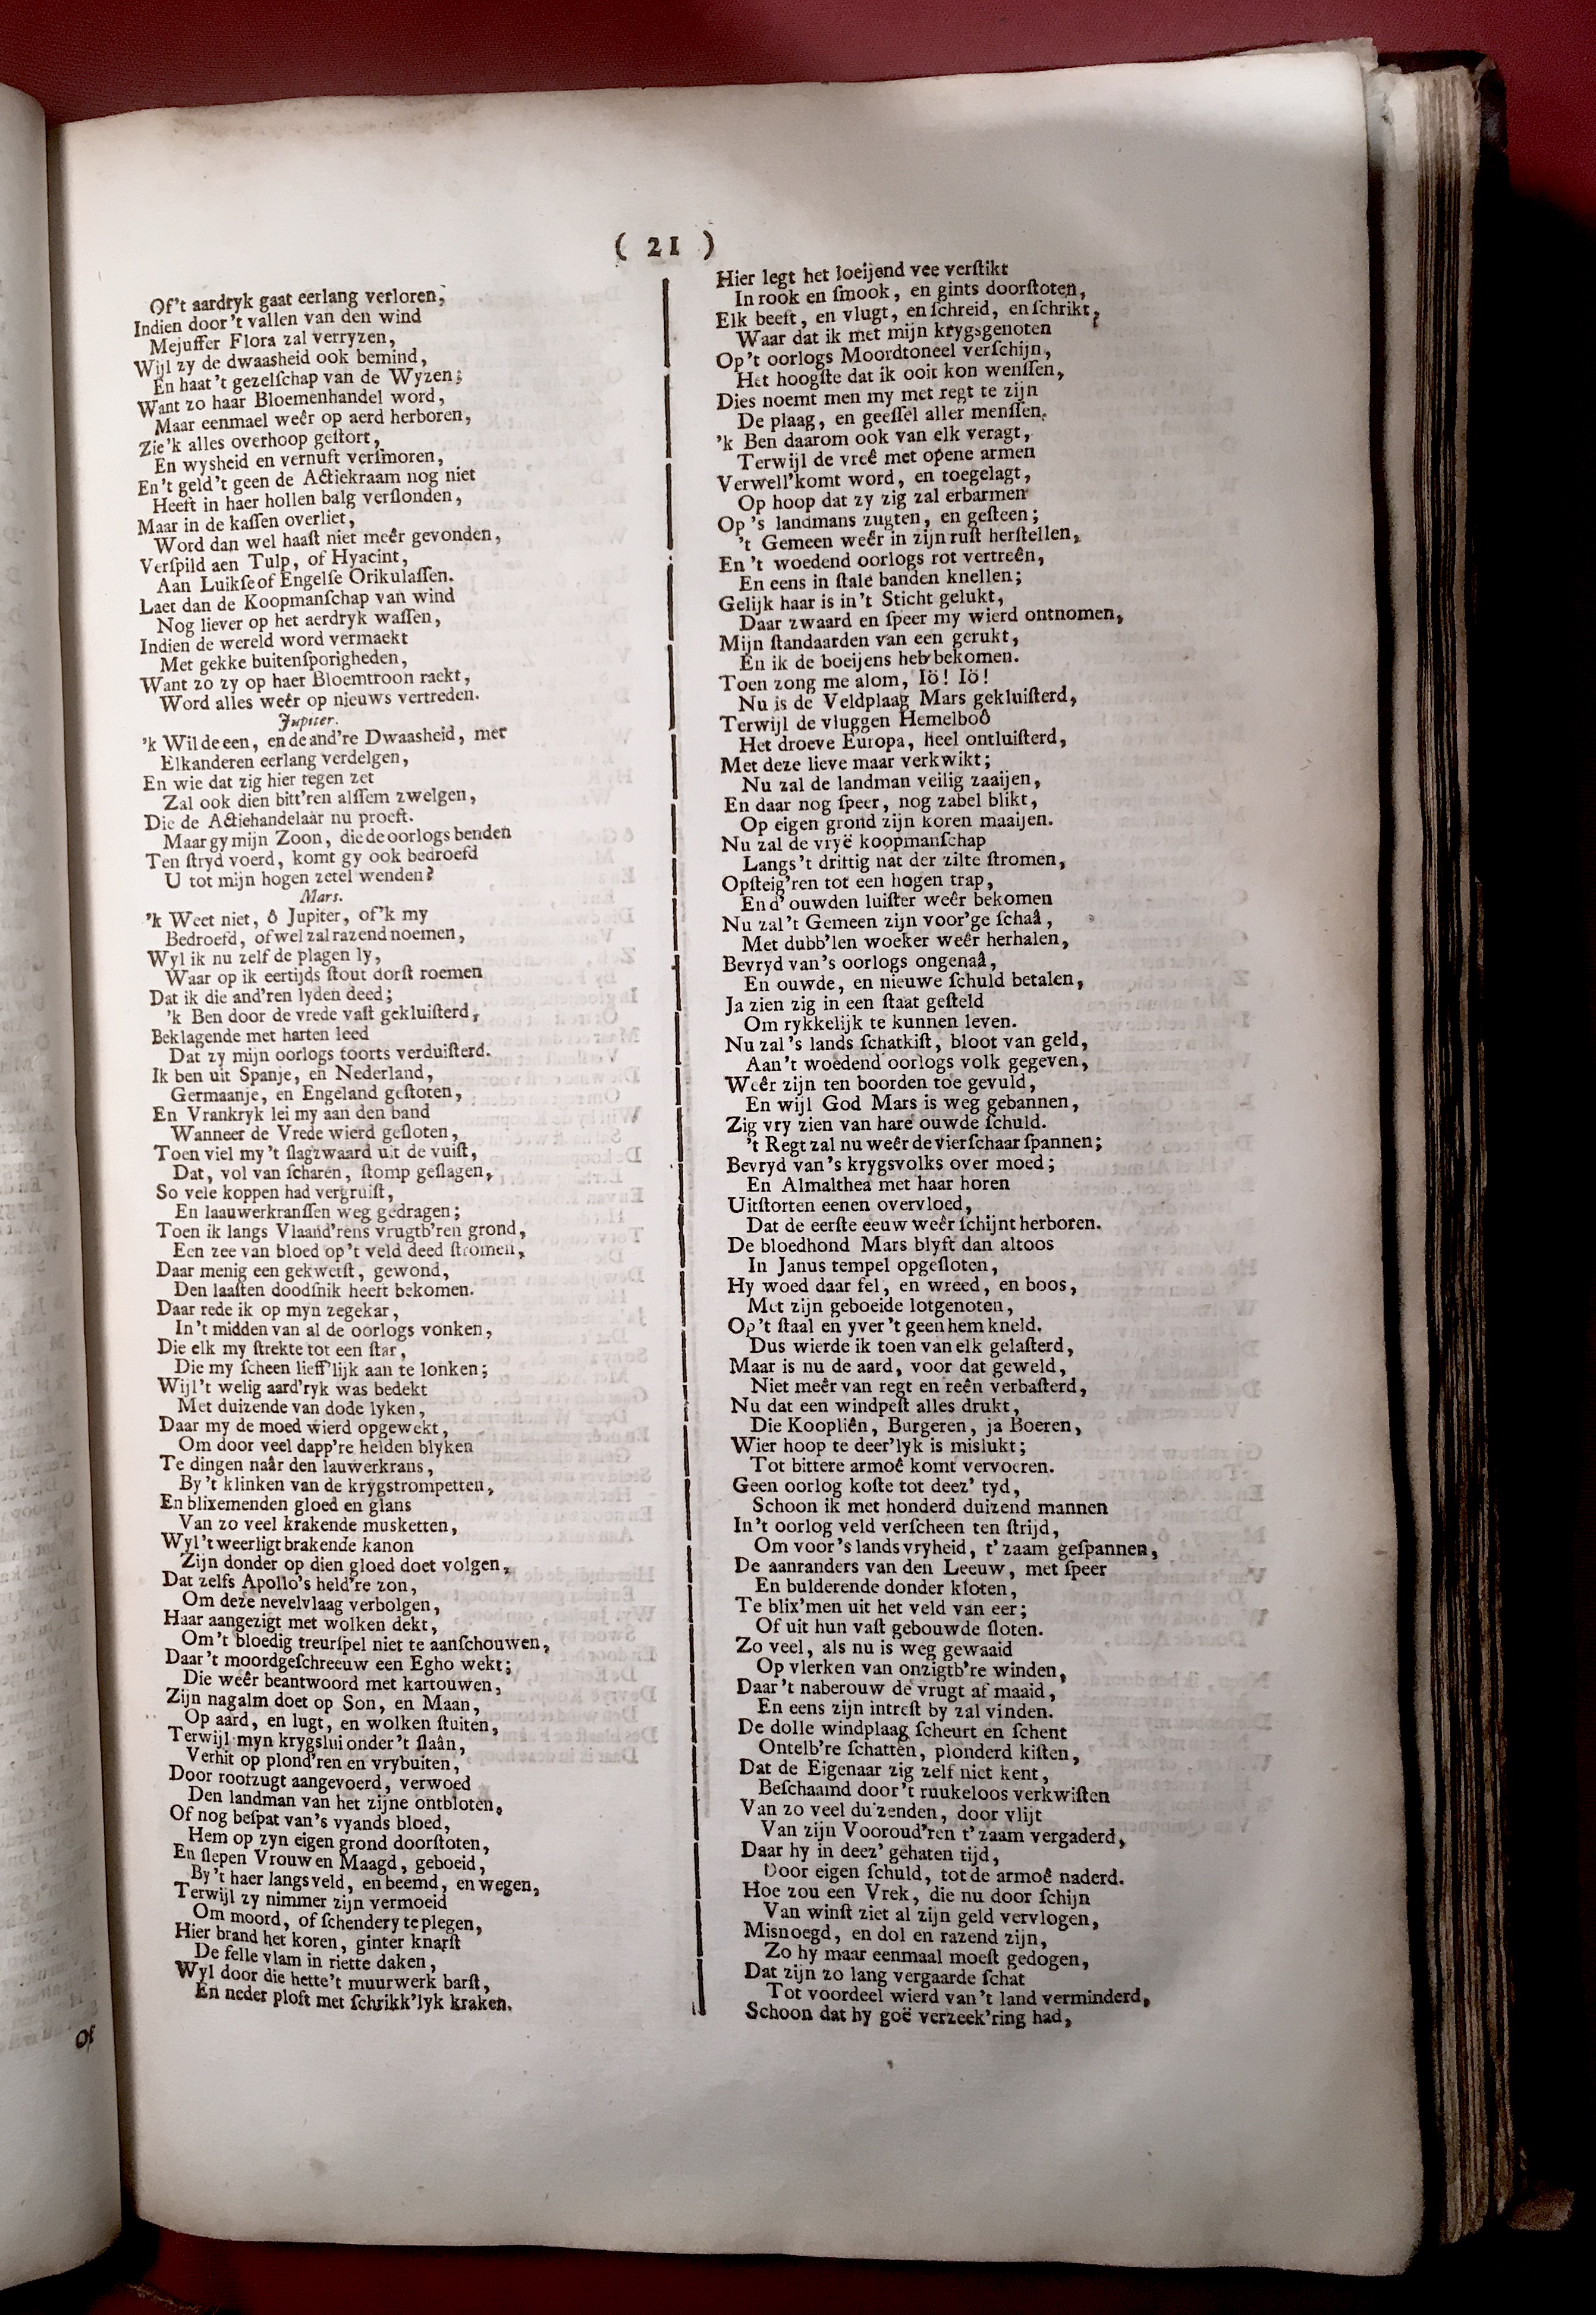 ( 21 )
Of't aardryk gaat eerlang verloren,
Indien door't vallen van den wind
Mejuffer Flora zal verryzen,
Wijl zy de dwaasheid ook bemind,
En haat't gezelſchap van de Wyzen;
Want zo haar Bloemenhandel word,
Maar eenmael weêr op aerd herboren,
Zie'k alles overhoop geſtort,
En wysheid en vernuft verſmoren,
En't geld't geen de Actiekraam nog niet
Heeft in haer hollen balg verſlonden,
Maar in de kaſſen overliet,
Word dan wel haaſt niet meêr gevonden,
Verſpild aen Tulp, of Hyacint,
Aan Luikſe of Engelſe Orikulaſſen.
Laet dan de Koopmanſchap van wind
Nog liever op het aerdryk waſſen,
Indien de wereld word vermaekt
Met gekke buitenſporigheden,
Want zo zy op haer Bloemtroon raekt,
Word alles weêr op nieuws vertreden.
Jupiter.
'k Wil de een, en de and're Dwaasheid, met
Elkanderen eerlang verdelgen,
En wie dat zig hier tegen zet
Zal ook dien bitt'ren alſſem zwelgen,
Die de Actiehandelaar nu proeft.
Maar gy mijn Zoon, die de oorlogs benden
Ten ſtryd voerd, komt gy ook bedroefd
U tot mijn hogen zetel wenden?
Mars.
'k Weet niet, ô Jupiter, of'k my
Bedroefd, of wel zal razend noemen,
Wyl ik nu zelf de plagen ly,
Waar op ik eertijds ſtout dorſt roemen
Dat ik die and'ren lyden deed;
'k Ben door de vrede vaſt gekluiſterd,
Beklagende met harten leed
Dat zy mijn oorlogs toorts verduiſterd.
Ik ben uit Spanje, en Nederland,
Germaanje, en Engeland geſtoten,
En Vrankryk lei my aan den band
Wanneer de Vrede wierd geſloten,
Toen viel my't ſlagzwaard uit de vuiſt,
Dat, vol van ſcharen, ſtomp geſlagen,
So vele koppen had vergruiſt,
En laauwerkranſſen weg gedragen;
Toen ik langs Vlaand'rens vrugtb'ren grond,
Een zee van bloed op't veld deed ſtromen,
Daar menig een gekwetſt, gewond,
Den laaſten doodſnik heeft bekomen.
Daar rede ik op myn zegekar,
In't midden van al de oorlogs vonken,
Die elk my ſtrekte tot een ſtar,
Die my ſcheen lieff'lijk aan te lonken;
Wijl't welig aard'ryk was bedekt
Met duizende van dode lyken,
Daar my de moed wierd opgewekt,
Om door veel dapp're helden blyken
Te dingen naâr den lauwerkrans,
By 't klinken van de krygstrompetten,
En blixemenden gloed en glans
Van zo veel krakende musketten,
Wyl't weerligt brakende kanon
Zijn donder op dien gloed doet volgen,
Dat zelfs Apollo's held're zon,
Om deze nevelvlaag verbolgen,
Haar aangezigt met wolken dekt,
Om't bloedig treurſpel niet te aanſchouwen,
Daar't moordgeſchreeuw een Egho wekt;
Die weêr beantwoord met kartouwen,
Zijn nagalm doet op Son, en Maan,
Op aard, en lugt, en wolken ſtuiten,
Terwijl myn krygslui onder't ſlaân,
Verhit op plond'ren en vrybuiten,
Door roofzugt aangevoerd, verwoed
Den landman van het zijne ontbloten,
Of nog beſpat van's vyands bloed,
Hem op zyn eigen grond doorſtoten,
En ſlepen Vrouw en Maagd, geboeid,
By't haer langs veld, en beemd, en wegen,
Terwijl zy nimmer zijn vermoeid
Om moord, of ſchendery te plegen,
Hier brand het koren, ginter knarſt
De felle vlam in riette daken,
Wyl door die hette't muurwerk barſt,
En neder ploft met ſchrikk'lyk kraken.
Hier legt het loeijend vee verſtikt
In rook en ſmook, en gints doorſtoten,
Elk beeft, en vlugt, en ſchreid, en ſchrikt,
Waar dat ik met mijn krygsgenoten
Op't oorlogs Moordtoneel verſchijn,
Het hoogſte dat ik ooit kon wenſſen,
Dies noemt men my met regt te zijn
De plaag, en geeſſel aller menſſen.
'k Ben daarom ook van elk veragt,
Terwijl de vreê met opene armen
Verwell'komt word, en toegelagt,
Op hoop dat zy zig zal erbarmen
Op 's landmans zugten, en geſteen;
't Gemeen weêr in zijn ruſt herſtellen,
En 't woedend oorlogs rot vertreên,
En eens in ſtale banden knellen;
Gelijk haar is in't Sticht gelukt,
Daar zwaard en ſpeer my wierd ontnomen,
Mijn ſtandaarden van een gerukt,
En ik de boeijens heb bekomen.
Toen zong me alom, Iö! Iö!
Nu is de Veldplaag Mars gekluiſterd,
Terwijl de vluggen Hemelboô
Het droeve Europa, heel ontluiſterd,
Met deze lieve maar verkwikt;
Nu zal de landman veilig zaaijen,
En daar nog ſpeer, nog zabel blikt,
Op eigen grond zijn koren maaijen.
Nu zal de vryë koopmanſchap
Langs't driftig nat der zilte ſtromen,
Opſteig'ren tot een hogen trap,
En d' ouwden luiſter weêr bekomen
Nu zal't Gemeen zijn voor'ge ſchaâ,
Met dubb'len woeker weêr herhalen,
Bevryd van's oorlogs ongenaâ,
En ouwde, en nieuwe ſchuld betalen,
Ja zien zig in een ſtaat geſteld
Om rykkelijk te kunnen leven.
Nu zal 's lands ſchatkiſt, bloot van geld,
Aan't woedend oorlogs volk gegeven,
Weêr zijn ten boorden toe gevuld,
En wijl God Mars is weg gebannen,
Zig vry zien van hare ouwde ſchuld.
't Regt zal nu weêr de vierſchaar ſpannen;
Bevryd van's krygsvolks over moed;
En Almalthea met haar horen
Uitſtorten eenen overvloed,
Dat de eerſte eeuw weêr ſchijnt herboren.
De bloedhond Mars blyft dan altoos
In Janus tempel opgeſloten,
Hy woed daar fel, en wreed, en boos,
Met zijn geboeide lotgenoten,
Op't ſtaal en yver't geen hem kneld.
Dus wierde ik toen van elk gelaſterd,
Maar is nu de aard, voor dat geweld,
Niet meêr van regt en reên verbaſterd,
Nu dat een windpeſt alles drukt,
Die Koopliên, Burgeren, ja Boeren,
Wier hoop te deer'lyk is mislukt;
Tot bittere armoê komt vervoeren.
Geen oorlog koſte tot deez' tyd,
Schoon ik met honderd duizend mannen
In't oorlog veld verſcheen ten ſtrijd,
Om voor's lands vryheid, t'zaam geſpannen,
De aanranders van den Leeuw, met ſpeer
En bulderende donder kloten,
Te blix'men uit het veld van eer;
Of uit hun vaſt gebouwde ſloten.
Zo veel, als nu is weg gewaaid
Op vlerken van onzigtb're winden,
Daar't naberouw de vrugt af maaid,
En eens zijn intreſt by zal vinden.
De dolle windplaag ſcheurt en ſchent
Ontelb're ſchatten, plonderd kiſten,
Dat de Eigenaar zig zelf niet kent,
Beſchaamd door't ruukeloos verkwiſten
Van zo veel duizenden, door vlijt
Van zijn Vooroud'ren t'zaam vergaderd,
Daar hy in deez' gehaten tijd,
Door eigen ſchuld, tot de armoê naderd.
Hoe zou een Vrek, die nu door ſchijn
Van winſt ziet al zijn geld vervlogen,
Misnoegd, en dol en razend zijn,
Zo hy maar eenmaal moeſt gedogen,
Dat zijn zo lang vergaarde ſchat
Tot voordeel wierd van't land verminderd,
Schoon dat hy goë verzeek'ring had,
Of